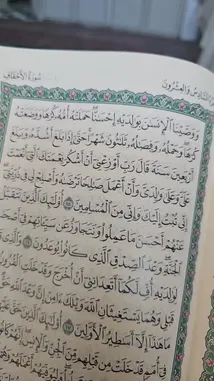 سُورَةُ الأَحْقَافِ
السَّادِسُ وَالْعِشْرُونَ
وَوَصَّيْنَا الْإِنسَٰنَ بِوَٰلِدَيْهِ إِحْسَٰنًا حَمَلَتْهُ أُمُّهُ كُرْهًا وَوَضَعَتْهُ
كُرْهًا وَحَمْلُهُ وَفِصَٰلُهُ ثَلَٰثُونَ شَهْرًا حَتَّىٰ إِذَا بَلَغَ أَشُدَّهُ وَبَلَغَ
أَرْبَعِينَ سَنَةً قَالَ رَبِّ أَوْزِعْنِي أَنْ أَشْكُرَ نِعْمَتَكَ الَّتِي أَنْعَمْتَ
عَلَيَّ وَعَلَىٰ وَٰلِدَيَّ وَأَنْ أَعْمَلَ صَٰلِحًا تَرْضَىٰهُ وَأَصْلِحْ لِي فِي ذُرِّيَّتِي
إِنِّي تُبْتُ إِلَيْكَ وَإِنِّي مِنَ الْمُسْلِمِينَ ١٥ أُوْلَٰئِكَ الَّذِينَ نَتَقَبَّلُ
عَنْهُمْ أَحْسَنَ مَا عَمِلُوا وَنَتَجَاوَزُ عَن سَيِّـَٔاتِهِمْ فِي أَصْحَٰبِ
الْجَنَّةِ وَعْدَ الصِّدْقِ الَّذِي كَانُوا يُوعَدُونَ ١٦ وَالَّذِي قَالَ
لِوَٰلِدَيْهِ أُفٍّ لَّكُمَا أَتَعِدَانِنِي أَنْ أُخْرَجَ وَقَدْ خَلَتِ الْقُرُونُ
مِن قَبْلِي وَهُمَا يَسْتَغِيثَانِ اللَّهَ وَيْلَكَ ءَامِنْ إِنَّ وَعْدَ اللَّهِ حَقٌّ
مَا هَٰذَا إِلَّا أَسَٰطِيرُ الْأَوَّلِينَ ١٧
فِي أُمَمٍ قَدْ خَلَتْ مِن قَبْلِهِم مِّنَ الْجِنِّ وَالْإِنسِ